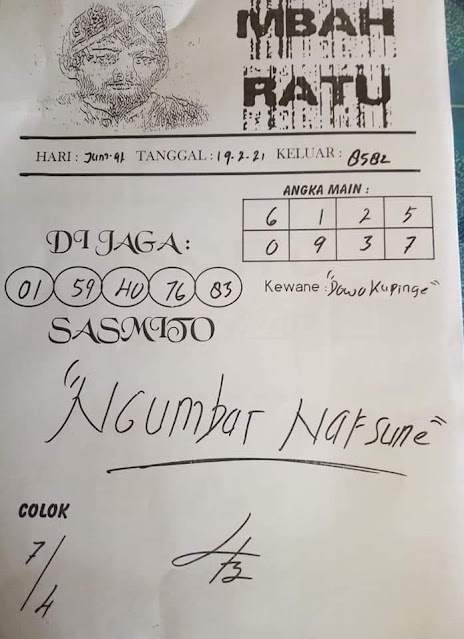 MBAH
RATU
HARI : Jum'at TANGGAL : 19-2-21 KELUAR : 8582
ANGKA MAIN :
6 1 2 5
0 9 3 7
DI JAGA :
01 59 40 76 83
Kewane : "Dowo Kupinge"
SASMITO
"NGUMbar Nafsune"
COLOK
7/4